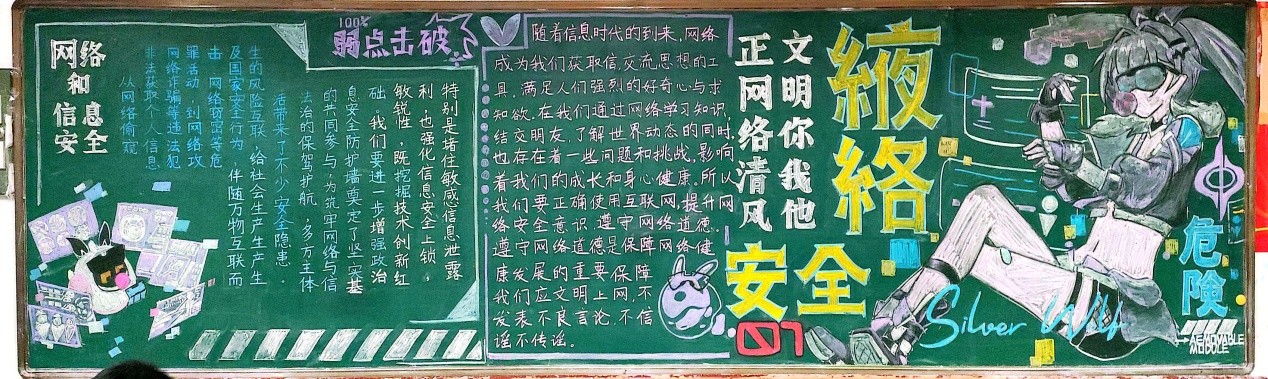 网络
和
信息
安全
从网络偷窥
非法获取个人信息
网络诈骗等违法犯
罪活动,到网络攻
击 网络窃密等危
及国家安全行为,伴随万物互联而
生的风险互联,给社会生产生产生
活带来了不少安全隐患.
法治的保驾护航,多方主体
的共同参与,为筑牢网络与信
息安全防护墙奠定了坚实基
础,我们要进一步增强政治
敏锐性,既挖掘技术创新红
利,也强化信息安全上锁,
特别是堵住敏感信息泄露
100%
弱点击破
随着信息时代的到来,网络
成为我们获取信,交流思想的工
具,满足人们强烈的好奇心与求
知欲.在我们通过网络学习知识,
结交朋友,了解世界动态的同时,
也存在着一些问题和挑战,影响
着我们的成长和身心健康。所以
我们要正确使用互联网,提升网
络安全意识,遵守网络道德.
遵守网络道德是保障网络健
康发展的重要保障
我们应文明上网,不
发表不良言论,不信
谣不传谣。
文明你我他
正网络清风
絡
安全
007
Silver Wolf
危険
REMOVABLE
MODULE